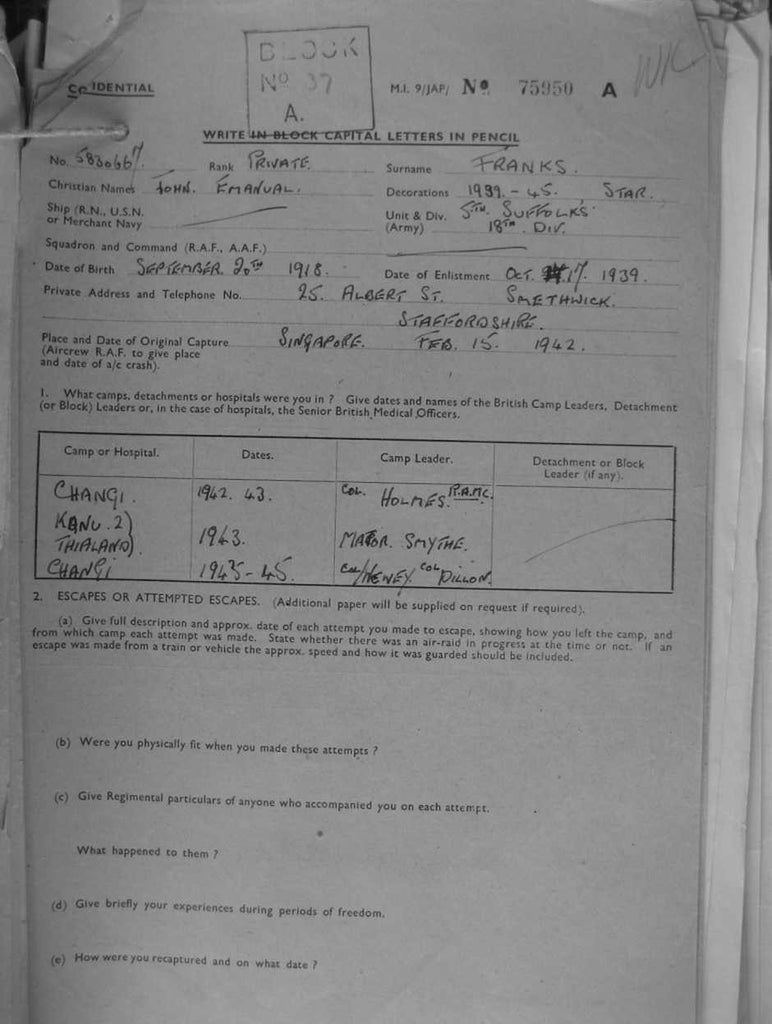 BLOCK
CONFIDENTIAL
Nº 37
M.I. 9/JAP/ Nº 75950 A
A.
WRITE IN BLOCK CAPITAL LETTERS IN PENCIL
No. 5830667. Rank PRIVATE. Surname FRANKS.
Christian Names JOHN. EMANUAL. Decorations 1939.-45. STAR.
Ship (R.N., U.S.N. or Merchant Navy
Unit & Div. (Army) 5TH. SUFFOLKS 18TH. DIV.
Squadron and Command (R.A.F., A.A.F.)
Date of Birth SEPTEMBER 20TH 1918. Date of Enlistment OCT. 17. 1939.
Private Address and Telephone No. 25. ALBERT ST. SMETHWICK.
STAFFORDSHIRE.
Place and Date of Original Capture SINGAPORE. FEB. 15. 1942.
(Aircrew R.A.F. to give place
and date of a/c crash).
1. What camps, detachments or hospitals were you in ? Give dates and names of the British Camp Leaders, Detachment
(or Block) Leaders or, in the case of hospitals, the Senior British Medical Officers.
Camp or Hospital. Dates. Camp Leader. Detachment or Block
Leader (if any).
CHANGI. 1942. 43. COL. HOLMES. R.A.M.C.
KANU. 2)
THIALAND). 1943. MAJOR. SMYTHE.
CHANGI 1943-45. COL/HEWEY. COL DILLON.
2. ESCAPES OR ATTEMPTED ESCAPES. (Additional paper will be supplied on request if required).
(a) Give full description and approx. date of each attempt you made to escape, showing how you left the camp, and
from which camp each attempt was made. State whether there was an air-raid in progress at the time or not. If an
escape was made from a train or vehicle the approx. speed and how it was guarded should be included.
(b) Were you physically fit when you made these attempts ?
(c) Give Regimental particulars of anyone who accompanied you on each attempt.
What happened to them ?
(d) Give briefly your experiences during periods of freedom.
(e) How were you recaptured and on what date ?